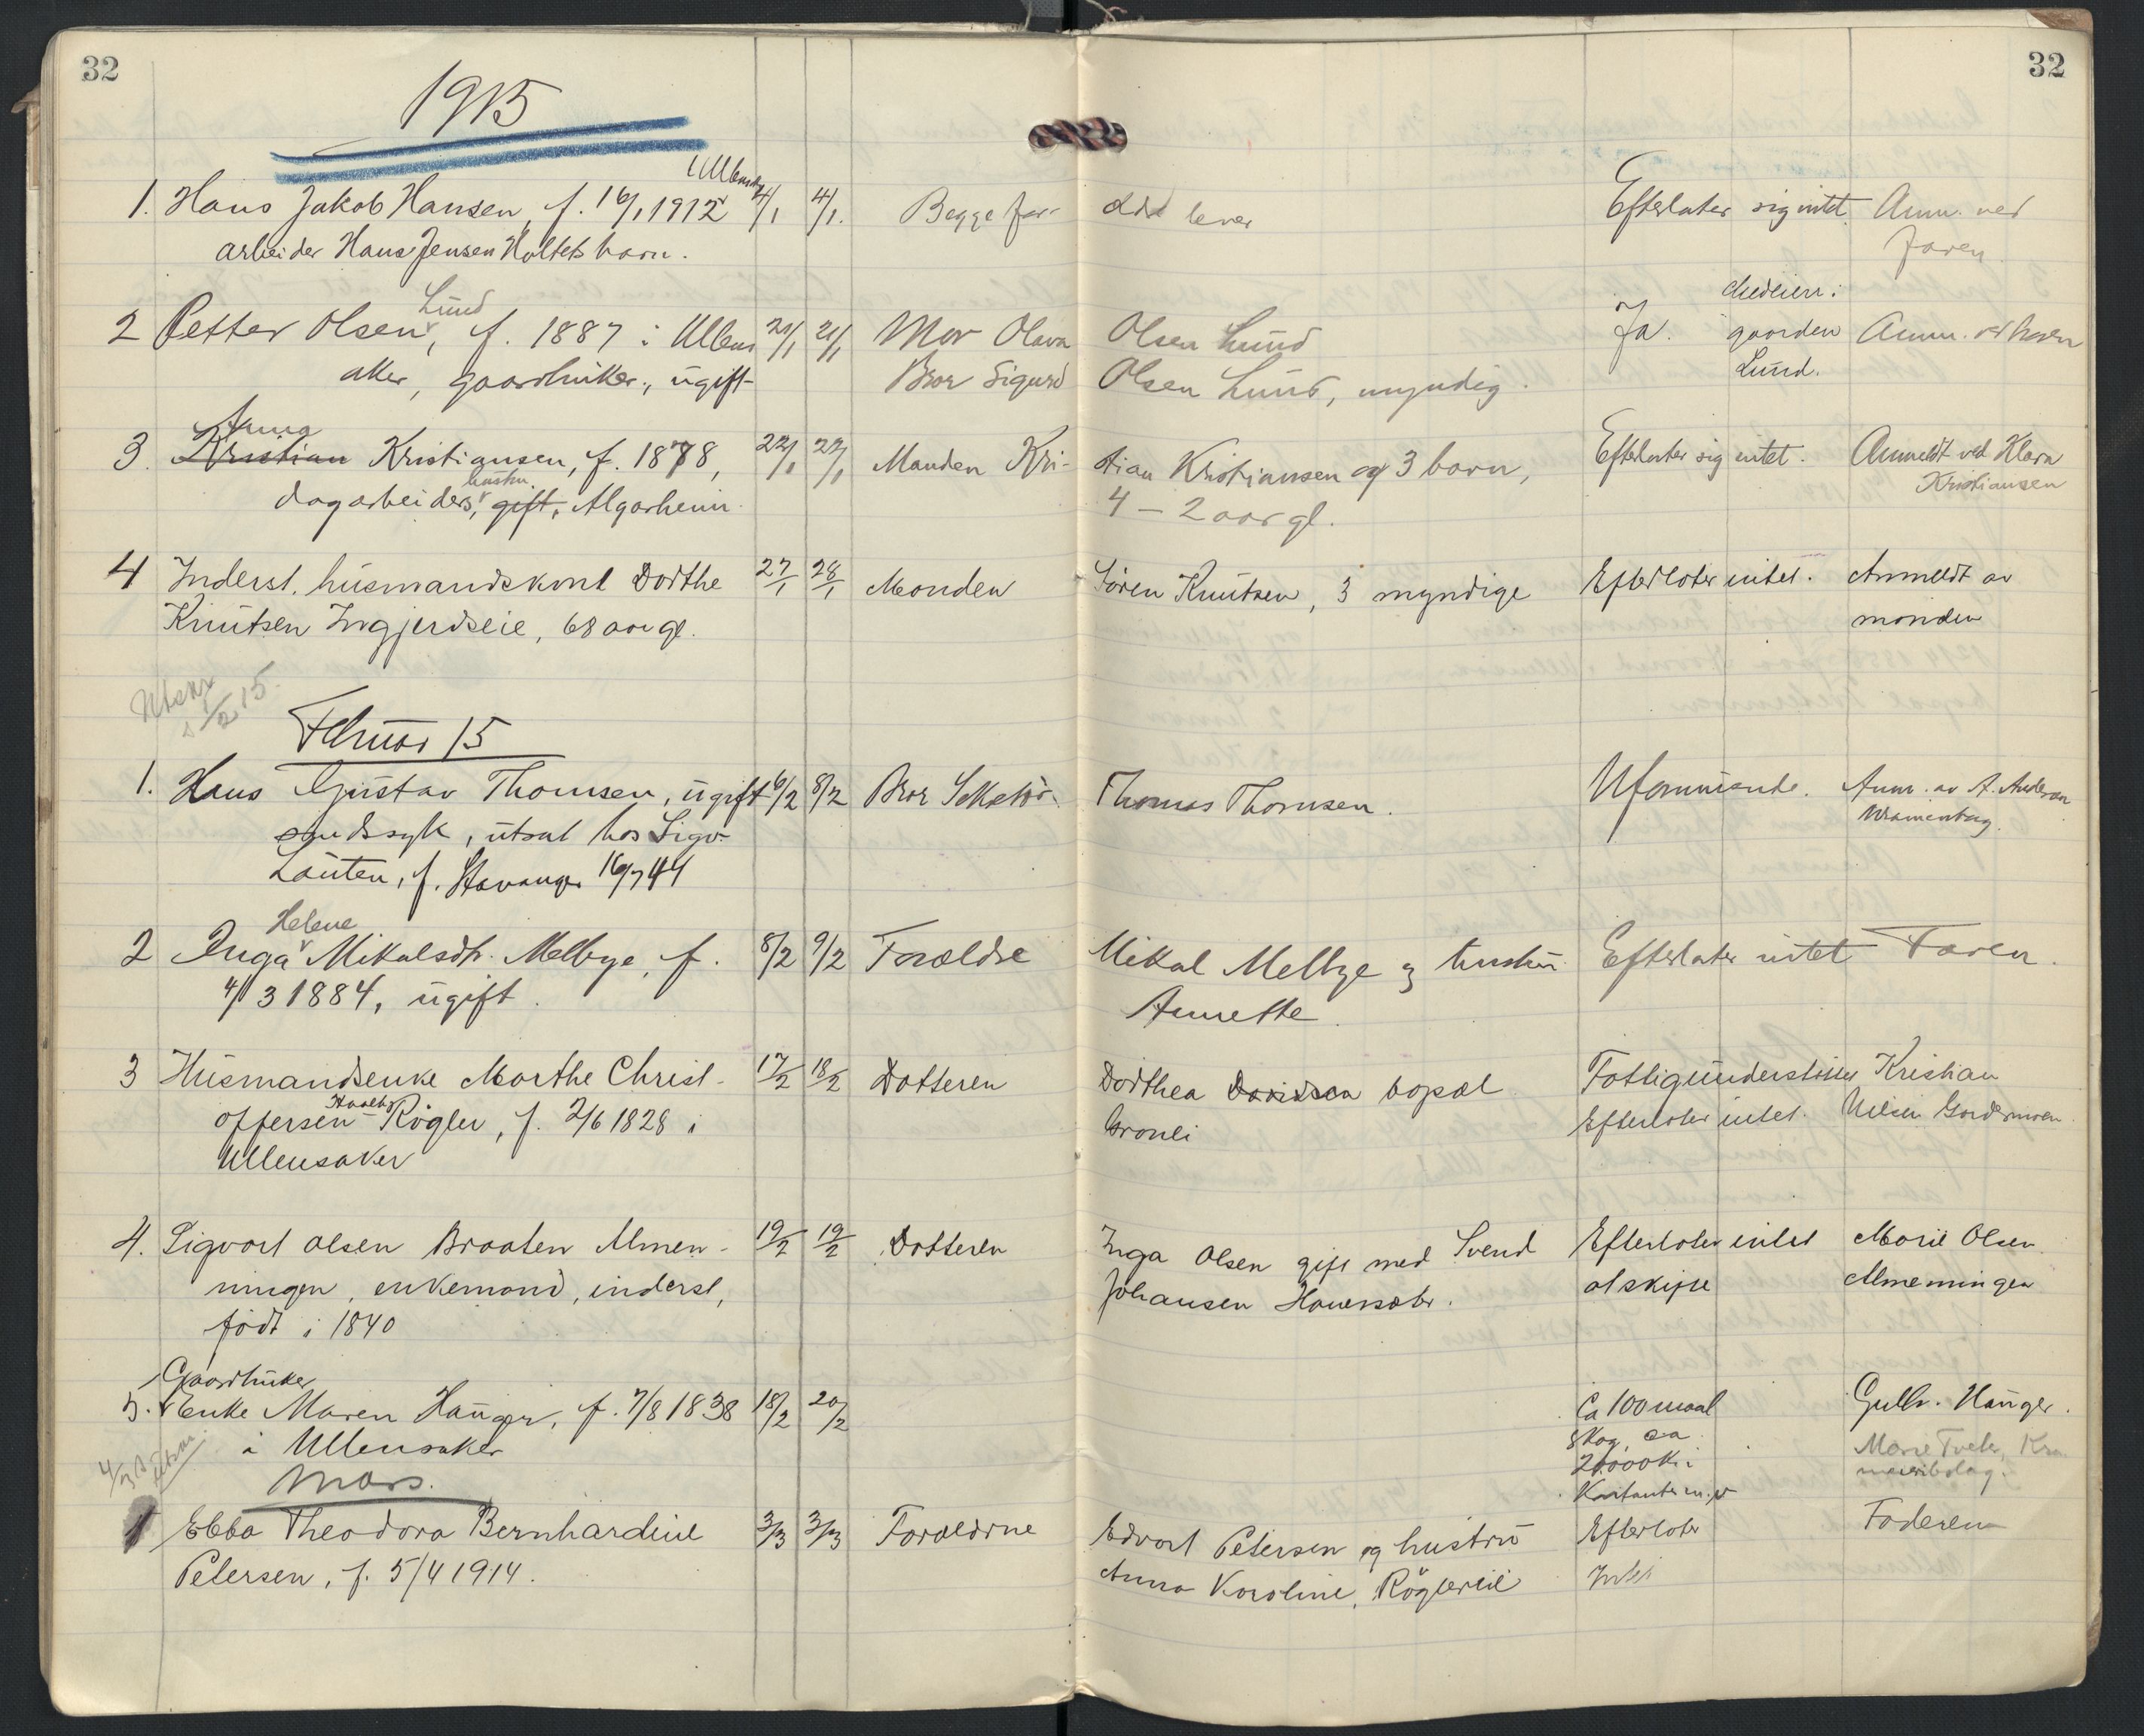 32
32
1915
i Ullensaker
1. Hans Jakob Hansen, f. 16/1 1912 4/1 4/1. Begge for- eldre lever Efterlater sig intet Anm. ved
arbeider Hans Jensen Holtets barn. faren
Lund medeier i
2 Petter Olsen, f. 1887 i Ullens 21/1 21/1 Mor Olava Olsen Lund Ja. gaarden Anm. ved
aker, gaardbruker, ugift Bror Sigurd Olsen Lund, myndig. Lund.
Anna
3. Kristian Kristiansen, f. 1878, 22/1 22/1 Manden Kri- stian Kristiansen og 3 barn, Efterlater sig intet. Anmeldt ved Klara
hustru
dagarbeiders, gift, Algarheim 4 – 2 aar gl. Kristiansen
4 Inderst, husmandskone Dorthe 27/1 28/1 Manden Søren Knutsen, 3 myndige Efterlater intet. Anmeldt av
Knutsen Ingjerdseie, 68 aar gl. manden
Utskr
1/2 15.
Februar 15
1. Hans Gustav Thomsen, ugift 6/2 8/2 Bror Thomas Thomsen. Uformuende. Anm. av A. Andersen
sindssyk, utsat hos Sigv.
Lauten, f. Stavanger 16/7 44
Helene
2 Inga Mikalsdtr. Melbye, f. 8/2 9/2 Forældre Mikal Melbye og hustru Efterlater intet Faren.
4/3 1884, ugift. Annette.
3 Husmandsenke Marthe Christ- 17/2 18/2 Datteren Dorthea Davidsen bopæl Fattigunderstøttet Kristian
offersen Røgler, f. 2/6 1828 i Gronli Efterlater intet. Nilsen Gardermoen.
Ullensaker
4. Sigvart Olsen Braaten Almen- 19/2 19/2 Datteren Inga Olsen gift med Svend Efterlater intet Marie Olsen
ningen, enkemand, inderst, Johansen Hauerseter. at skifte Almenningen
født i 1840
Gaardbruker
5. Enke Maren Hauger, f. 7/8 1838 18/2 20/2 Ca 100 maal Gulbr. Hauger.
i Ullensaker skog, ca Marie Tveter, Kra.
20000 Kr. i meieribolag.
4/3
Mars.
1 Ebba Theodora Bernhardine 3/3 3/3 Forældrne Edvart Petersen og hustru Efterlater Faderen
Petersen, f. 5/4 1914. Anna Karoline, Røglereie Intet